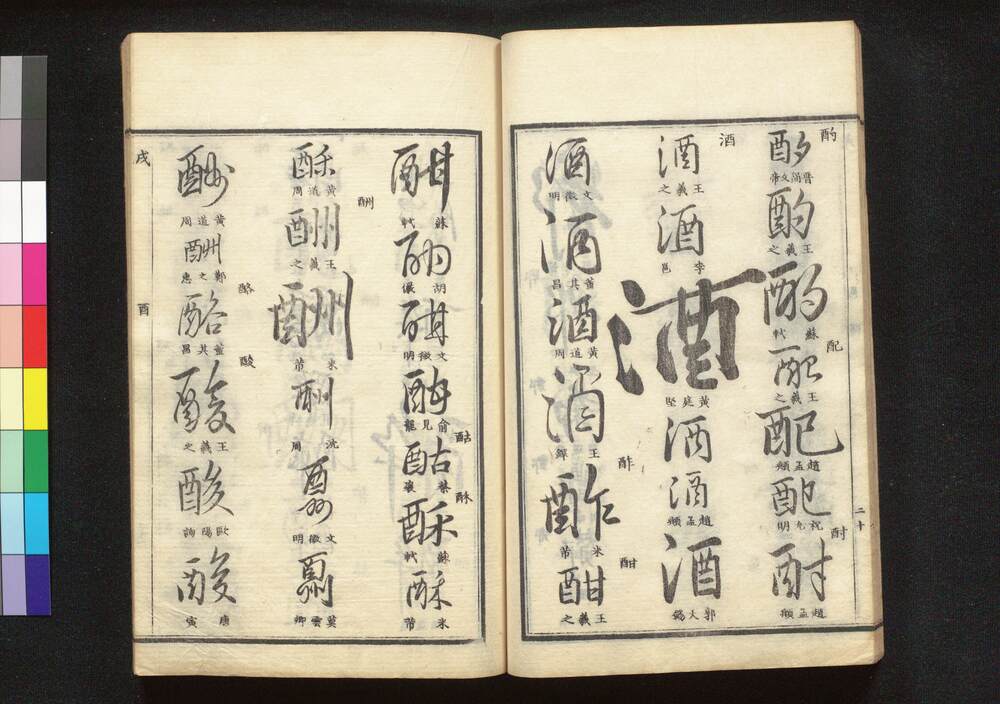 酌
酌
晋簡文帝
酌
王羲之
酌
蘇軾
配
配
王羲之
配
趙孟頫
配
祝允明
酎
酎
趙孟頫
二十
酒
酒
王羲之
酒
李邕
酒
黄庭堅
酒
酒
趙孟頫
酒
郭大
酒
文徴明
酒
董其昌
酒
黄道周
酒
王鐸
酢
酢
米芾
酣
酣
王羲之
酣
蘇軾
酣
胡儼
酣
文徴明
酣
俞見龍
酤
酤
蔡襄
酥
酥
蘇軾
酥
米芾
酥
黄道周
酬
酬
王羲之
酬
米芾
酬
沈周
文徴明
莫雲卿
酬
黄道周
酬
鄭之惠
酪
酪
董其昌
酸
酸
王羲之
酸
歐陽詢
酸
唐寅
戌
酉